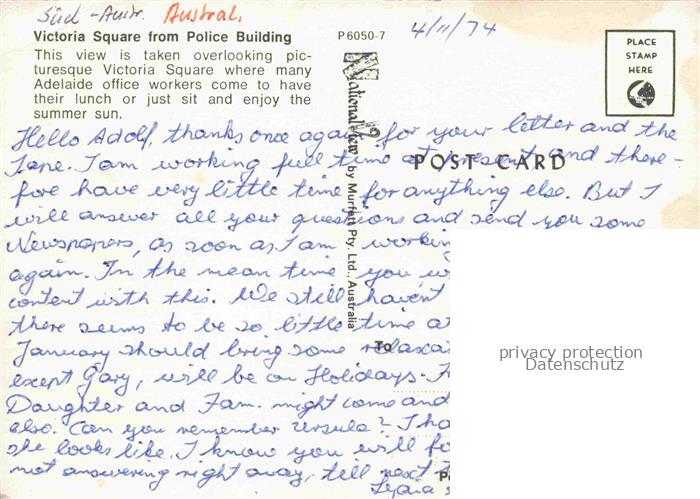 Süd-Austr. Austral.
4/11/74
Victoria Square from Police Building
P6050-7
This view is taken overlooking pic-
turesque Victoria Square where many
Adelaide office workers come to have
their lunch or just sit and enjoy the
summer sun.
PLACE
STAMP
HERE
National View by Murfett Pty. Ltd., Australia
POST CARD
Hello Adolf, thanks once again for your letter and the
Tape. I am working full time at present and there-
fore have very little time for anything else. But I
will answer all your questions and send you some
Newspapers, as soon as I am working
again. In the mean time you w
content with this. We still haven't
there seems to be so little time at
January should bring some relaxa
To
except Gary, will be on Holidays.
Daughter and Fam. might come and
also. Can you remember Ursula? I
she looks like. I know you will fo
not answering right away, till next
privacy protection
Datenschutz